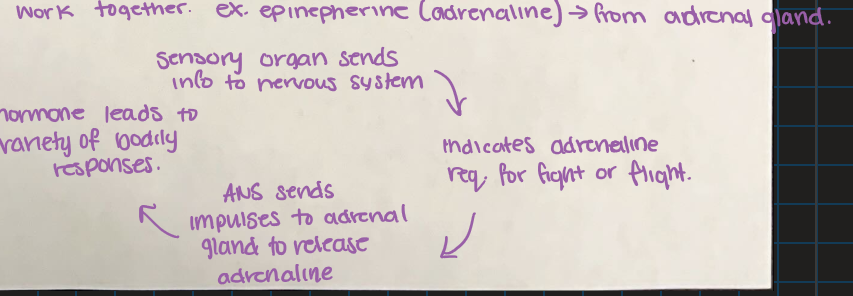 work together. ex. epinepherine (adrenaline) → from adrenal gland.
sensory organ sends
info to nervous system
indicates adrenaline
req. for fight or flight.
ANS sends
impulses to adrenal
gland to release
adrenaline
hormone leads to
variety of bodily
responses.